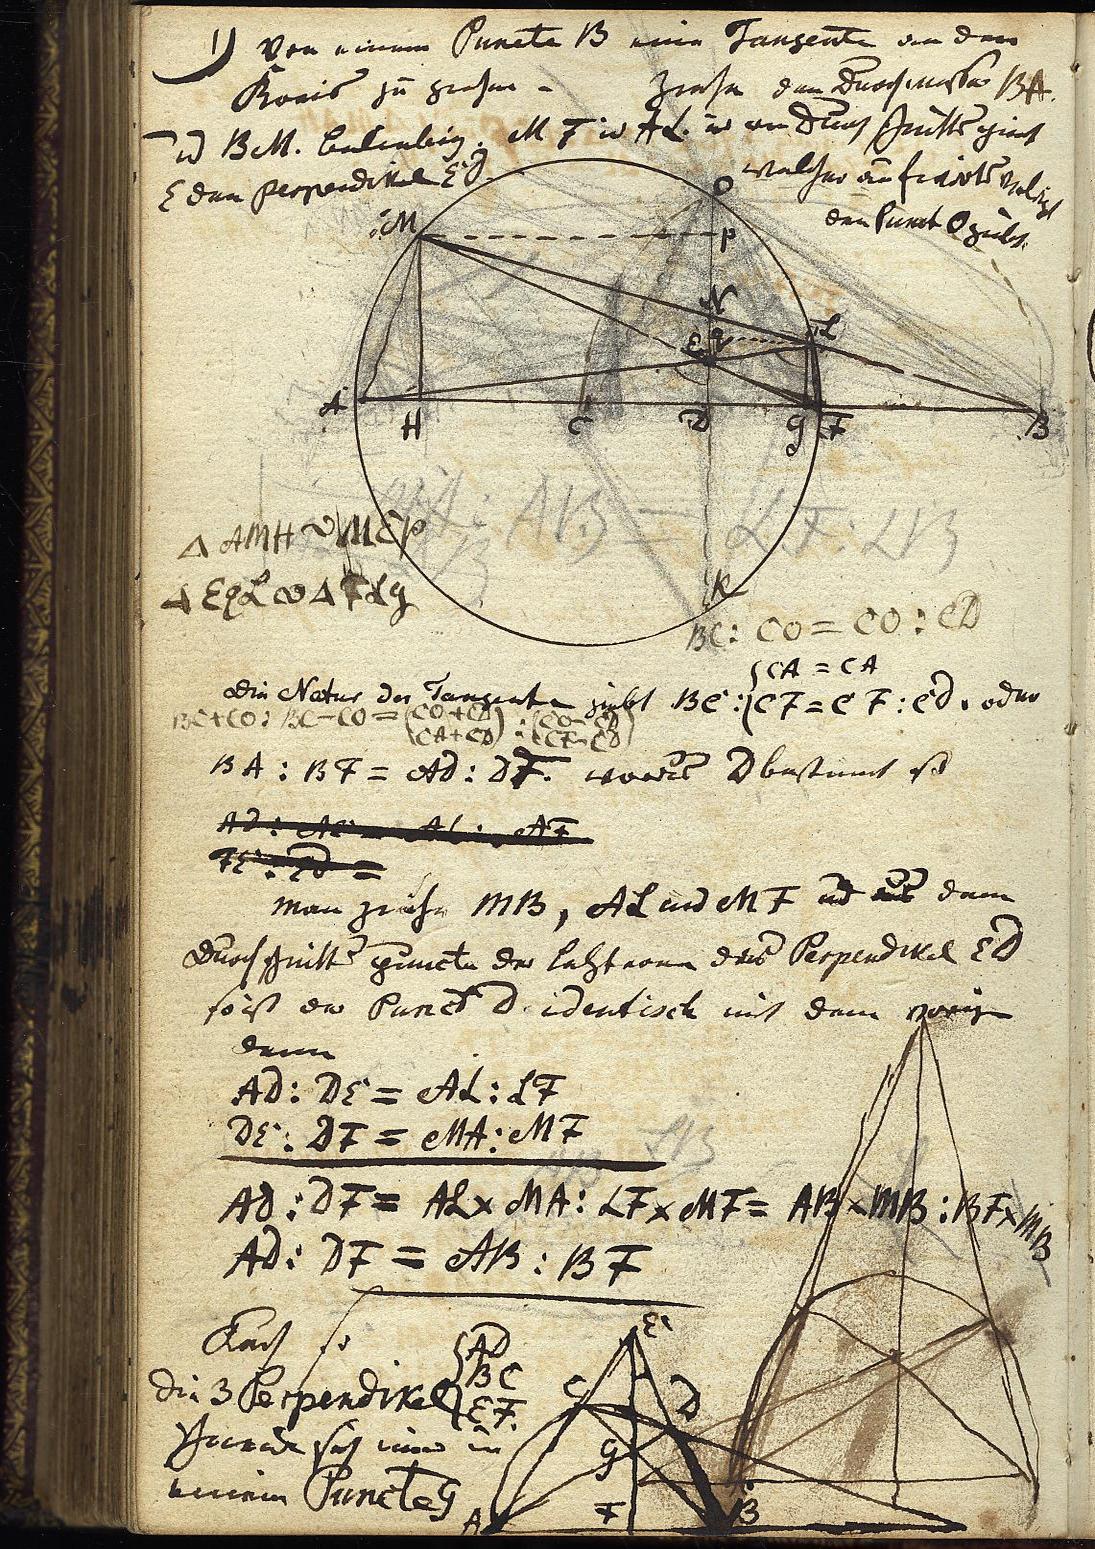 1) Von einem Puncte B eine Tangente an den
Kreis zu ziehen – Ziehe den Durchmesser BA.
und BM. beliebig. MF und AL. und
E den perpendikel ED.
welcher
den Punct O giebt.
O
M
P
N
E q L
A H C D g F B
MA : AB = LF : LB
△ AMH ∾ MEP
△ EqL ∾ △ FLg
K
BC : CO = CO : CD
CA = CA
die Natur der Tangente giebt BC : CF = CF : CD. oder
BC+CO : BC−CO = (CO+CD) : (CO−CD)
CA+CD CF−CD
BA : BF = AD : DF. woraus D bestimmt ist
man ziehe MB, AL und MF und aus dem
Durchschnitts puncte der letztern das Perpendikel ED
so ist der Punct D identisch mit dem vorigen
denn
AD : DE = AL : LF
DE : DF = MA : MF
LB
AB
AD : DF = AL × MA : LF × MF = AB × MB : BF × MB
AD : DF = AB : BF
Auch so
die 3 Perpendikel
AD
BC
EF.
schneiden sich immer in
einem Puncte G
E
C D
G
A F B